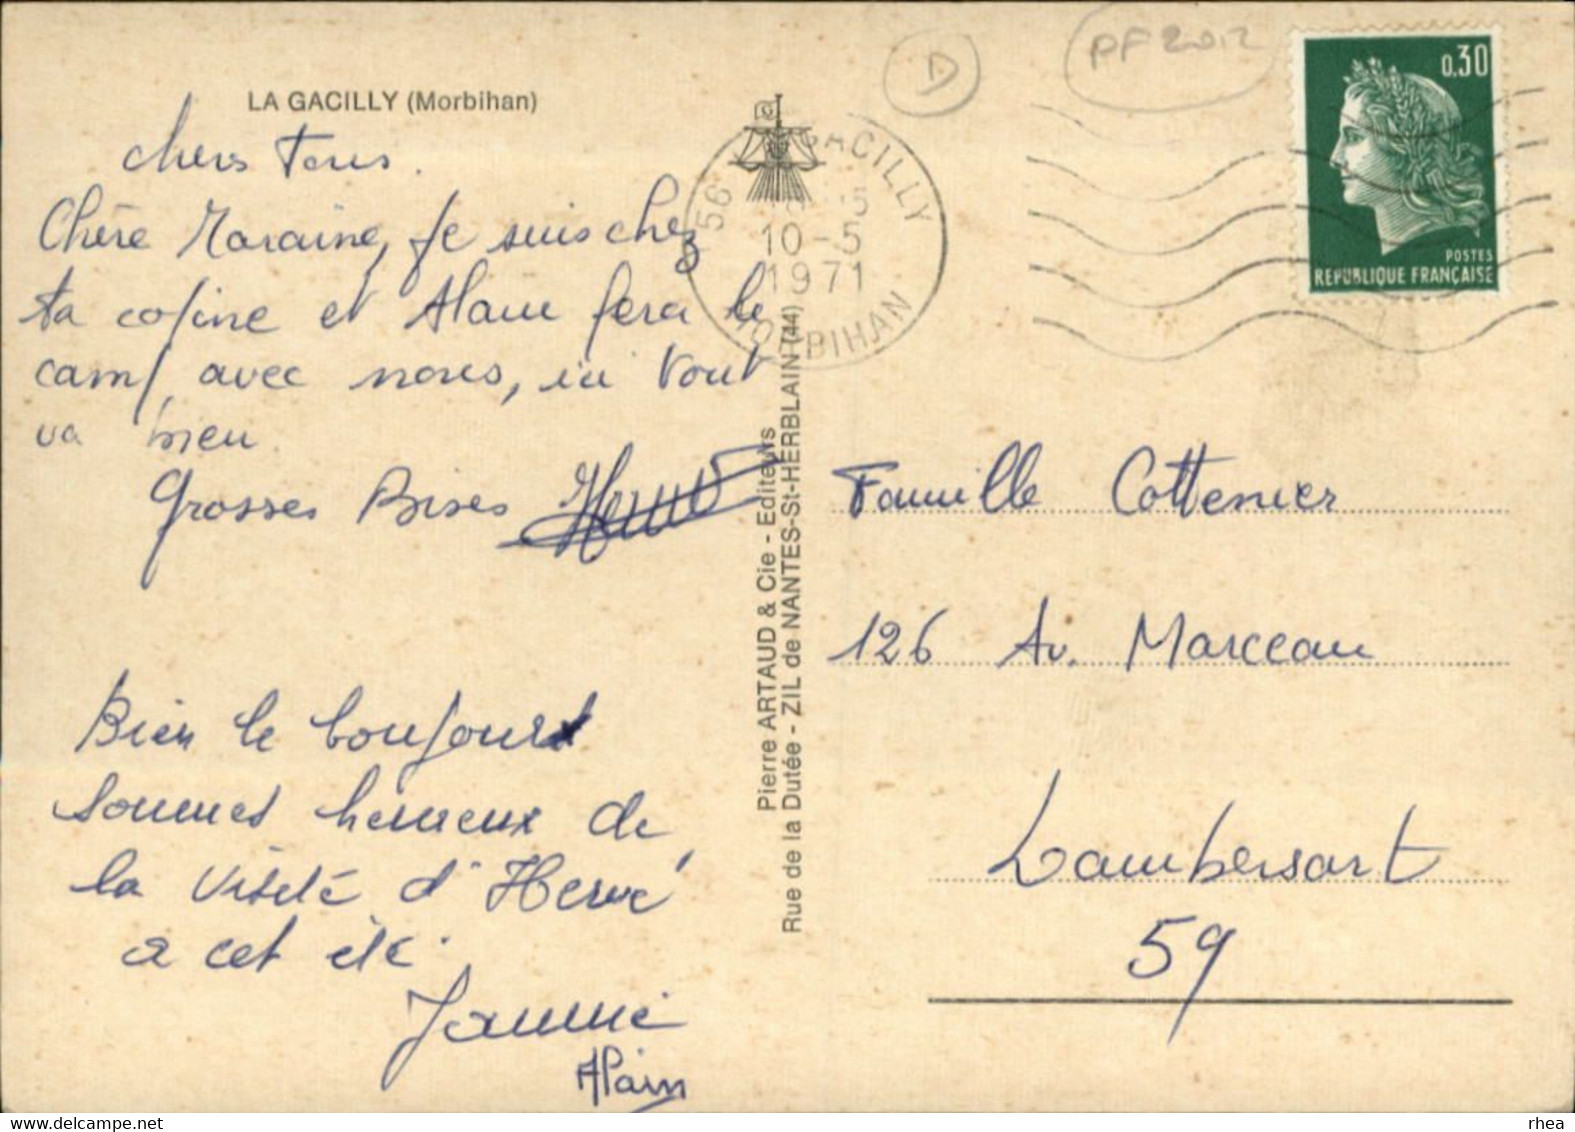 LA GACILLY (Morbihan)
Chers Tous.
Chère Maraine, je suis chez
ta copine et Alain fera le
camp avec nous, ici tout
va bien.
Grosses Bises Hervé
Bien le bonjour
sommes heureux de
la visite d'Hervé
a cet été.
Jannie
Alain
Pierre ARTAUD & Cie - Editeurs
Rue de la Dutée - ZIL de NANTES-St-HERBLAIN (44)
D
PF2012
56 LA GACILLY
10-5
1971
MORBIHAN
0,30
POSTES
REPUBLIQUE FRANÇAISE
Famille Cottenier
126 Av. Marceau
Lambersart
59
rhea